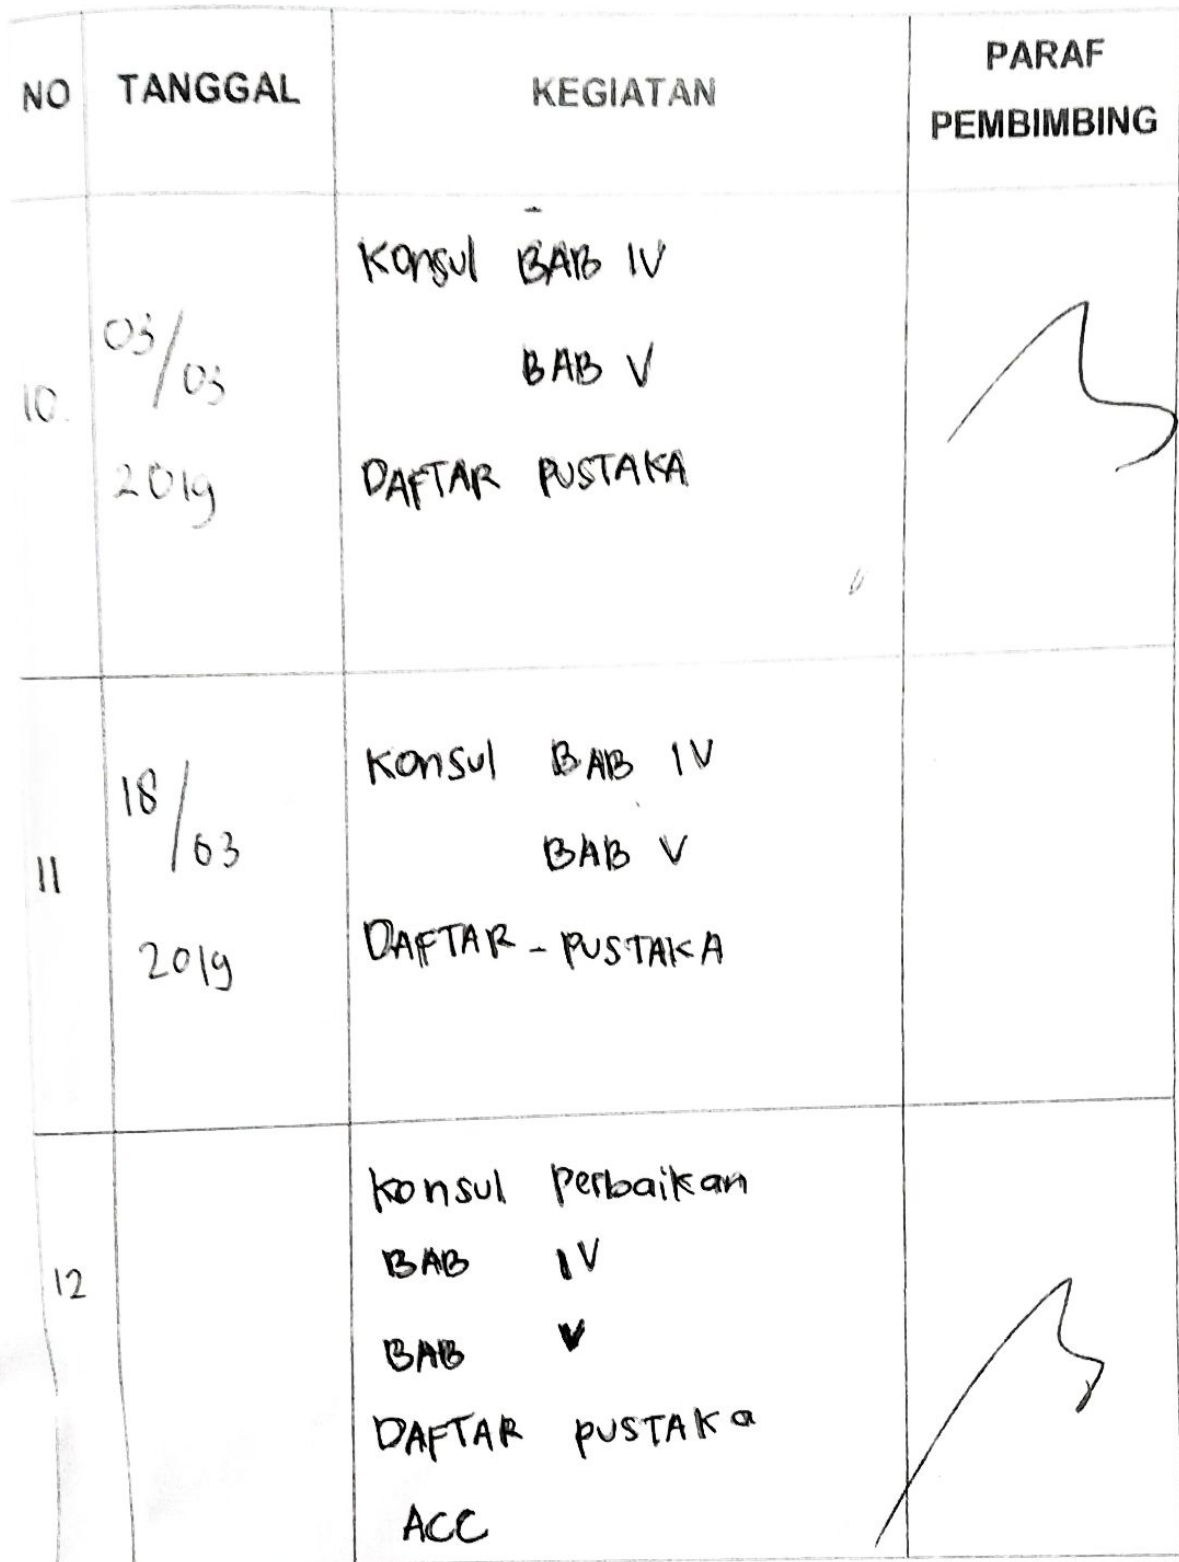 NO TANGGAL KEGIATAN PARAF PEMBIMBING
10. 03/03 2019
Konsul BAB IV
BAB V
DAFTAR PUSTAKA
11 18/03 2019
Konsul BAB IV
BAB V
DAFTAR - PUSTAKA
12
Konsul Perbaikan
BAB IV
BAB V
DAFTAR PUSTAKa
ACC